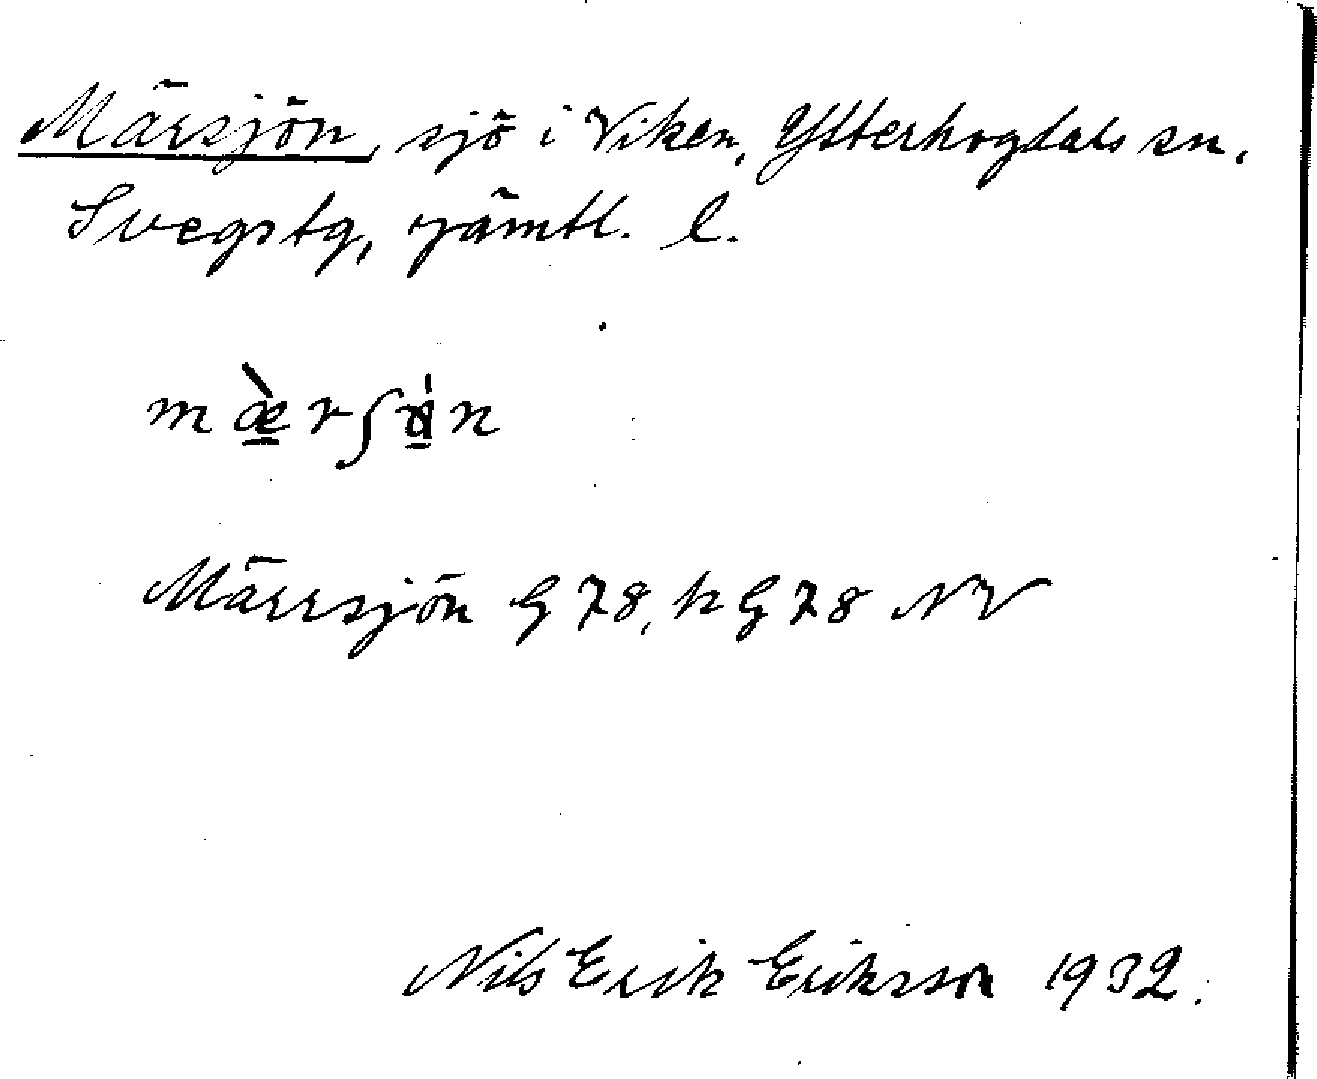 Märsjön, sjö i Viken, Ytterhogdals sn,
Svegs tg, Jämtl. l.
Märrsjön G 78, k G 78 NV
Nils Erik Erikson 1932.